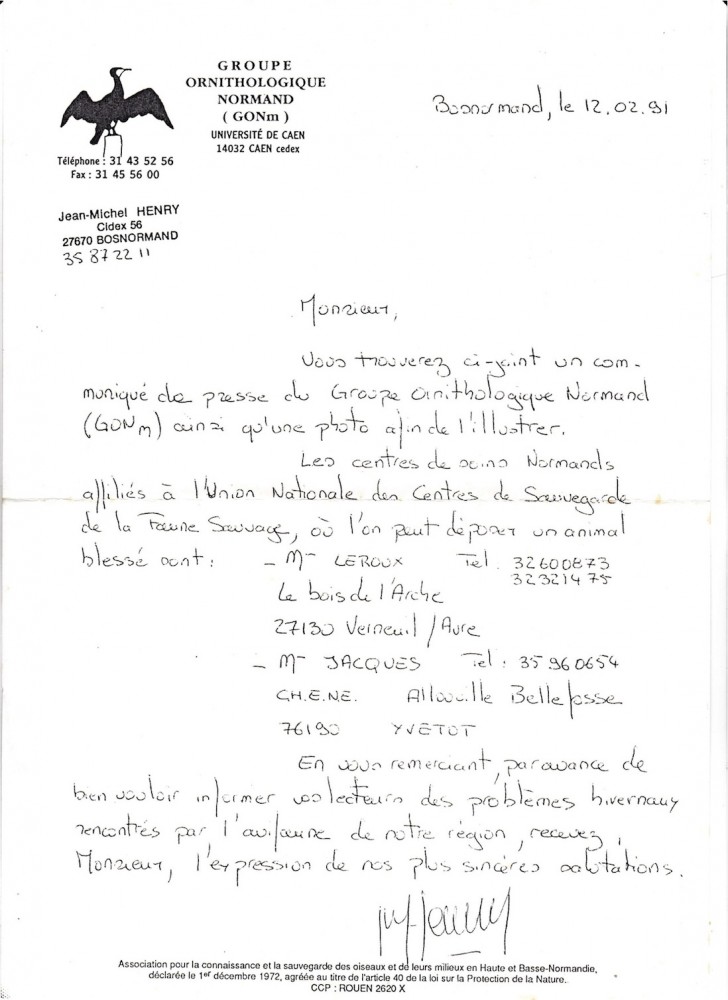 GROUPE
ORNITHOLOGIQUE
NORMAND
( GONm )
UNIVERSITÉ DE CAEN
14032 CAEN cedex
Téléphone : 31 43 52 56
Fax : 31 45 56 00
Bosnormand, le 12.02.91
Jean-Michel HENRY
Cidex 56
27670 BOSNORMAND
35 87 22 11
Monsieur,
Vous trouverez ci-joint un com-
muniqué de presse du Groupe Ornithologique Normand
(GONm) ainsi qu'une photo afin de l'illustrer.
Les centres de soins Normands
affiliés à l'Union Nationale des Centres de Sauvegarde
de la Faune Sauvage, où l'on peut déposer un animal
blessé sont : - Mr LEROUX Tel. 32600873
32321475
Le bois de l'Arche
27130 Verneuil/Avre
- Mr JACQUES Tel : 35 960654
C.H.E.N.E. Allouville Bellefosse
76190 YVETOT
En vous remerciant, par avance de
bien vouloir informer vos lecteurs des problèmes hivernaux
rencontrés par l'avifaune de notre région, recevez,
Monsieur, l'expression de nos plus sincères salutations.
Association pour la connaissance et la sauvegarde des oiseaux et de leurs milieux en Haute et Basse-Normandie,
déclarée le 1er décembre 1972, agréée au titre de l'article 40 de la loi sur la Protection de la Nature.
CCP : ROUEN 2620 X